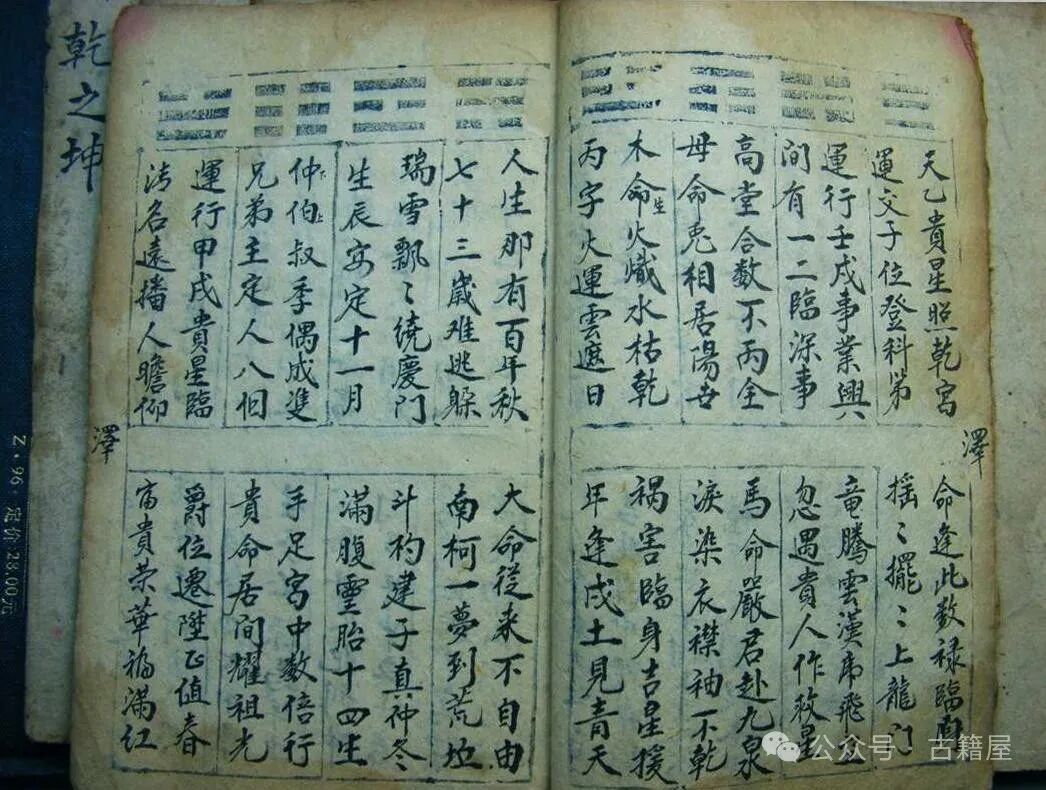 天乙貴星照乾宮
運交子位登科第
運行壬戌事業興
間有一二臨深事
高堂合數不丙全
母命兎相居陽世
木命生火熾水枯乾
丙字火運雲遮日
命逢此数禄臨
搖〻擺〻上龍门
竜騰雲漢帍飛
忽遇貴人作救星
馬命嚴君赴九泉
淚染衣襟袖不乾
禍害臨身吉星援
年逢戌土見青天
人生那有百年秋
七十三歲难逃躲
瑞雪飄〻繞慶門
生辰安定十一月
仲伯叔季偶成進
兄弟主定人八個
運行甲戌貴星臨
清名遠播人瞻仰
大命從来不自由
南柯一夢到荒坵
斗杓建子真仲冬
滿腹靈胎十四生
手足宮中数倍行
貴命居間耀祖光
爵位遷陞正值春
富貴荣華福滿
澤
澤
乾之坤
Z·96·定价:28.00元
公众号 古籍屋